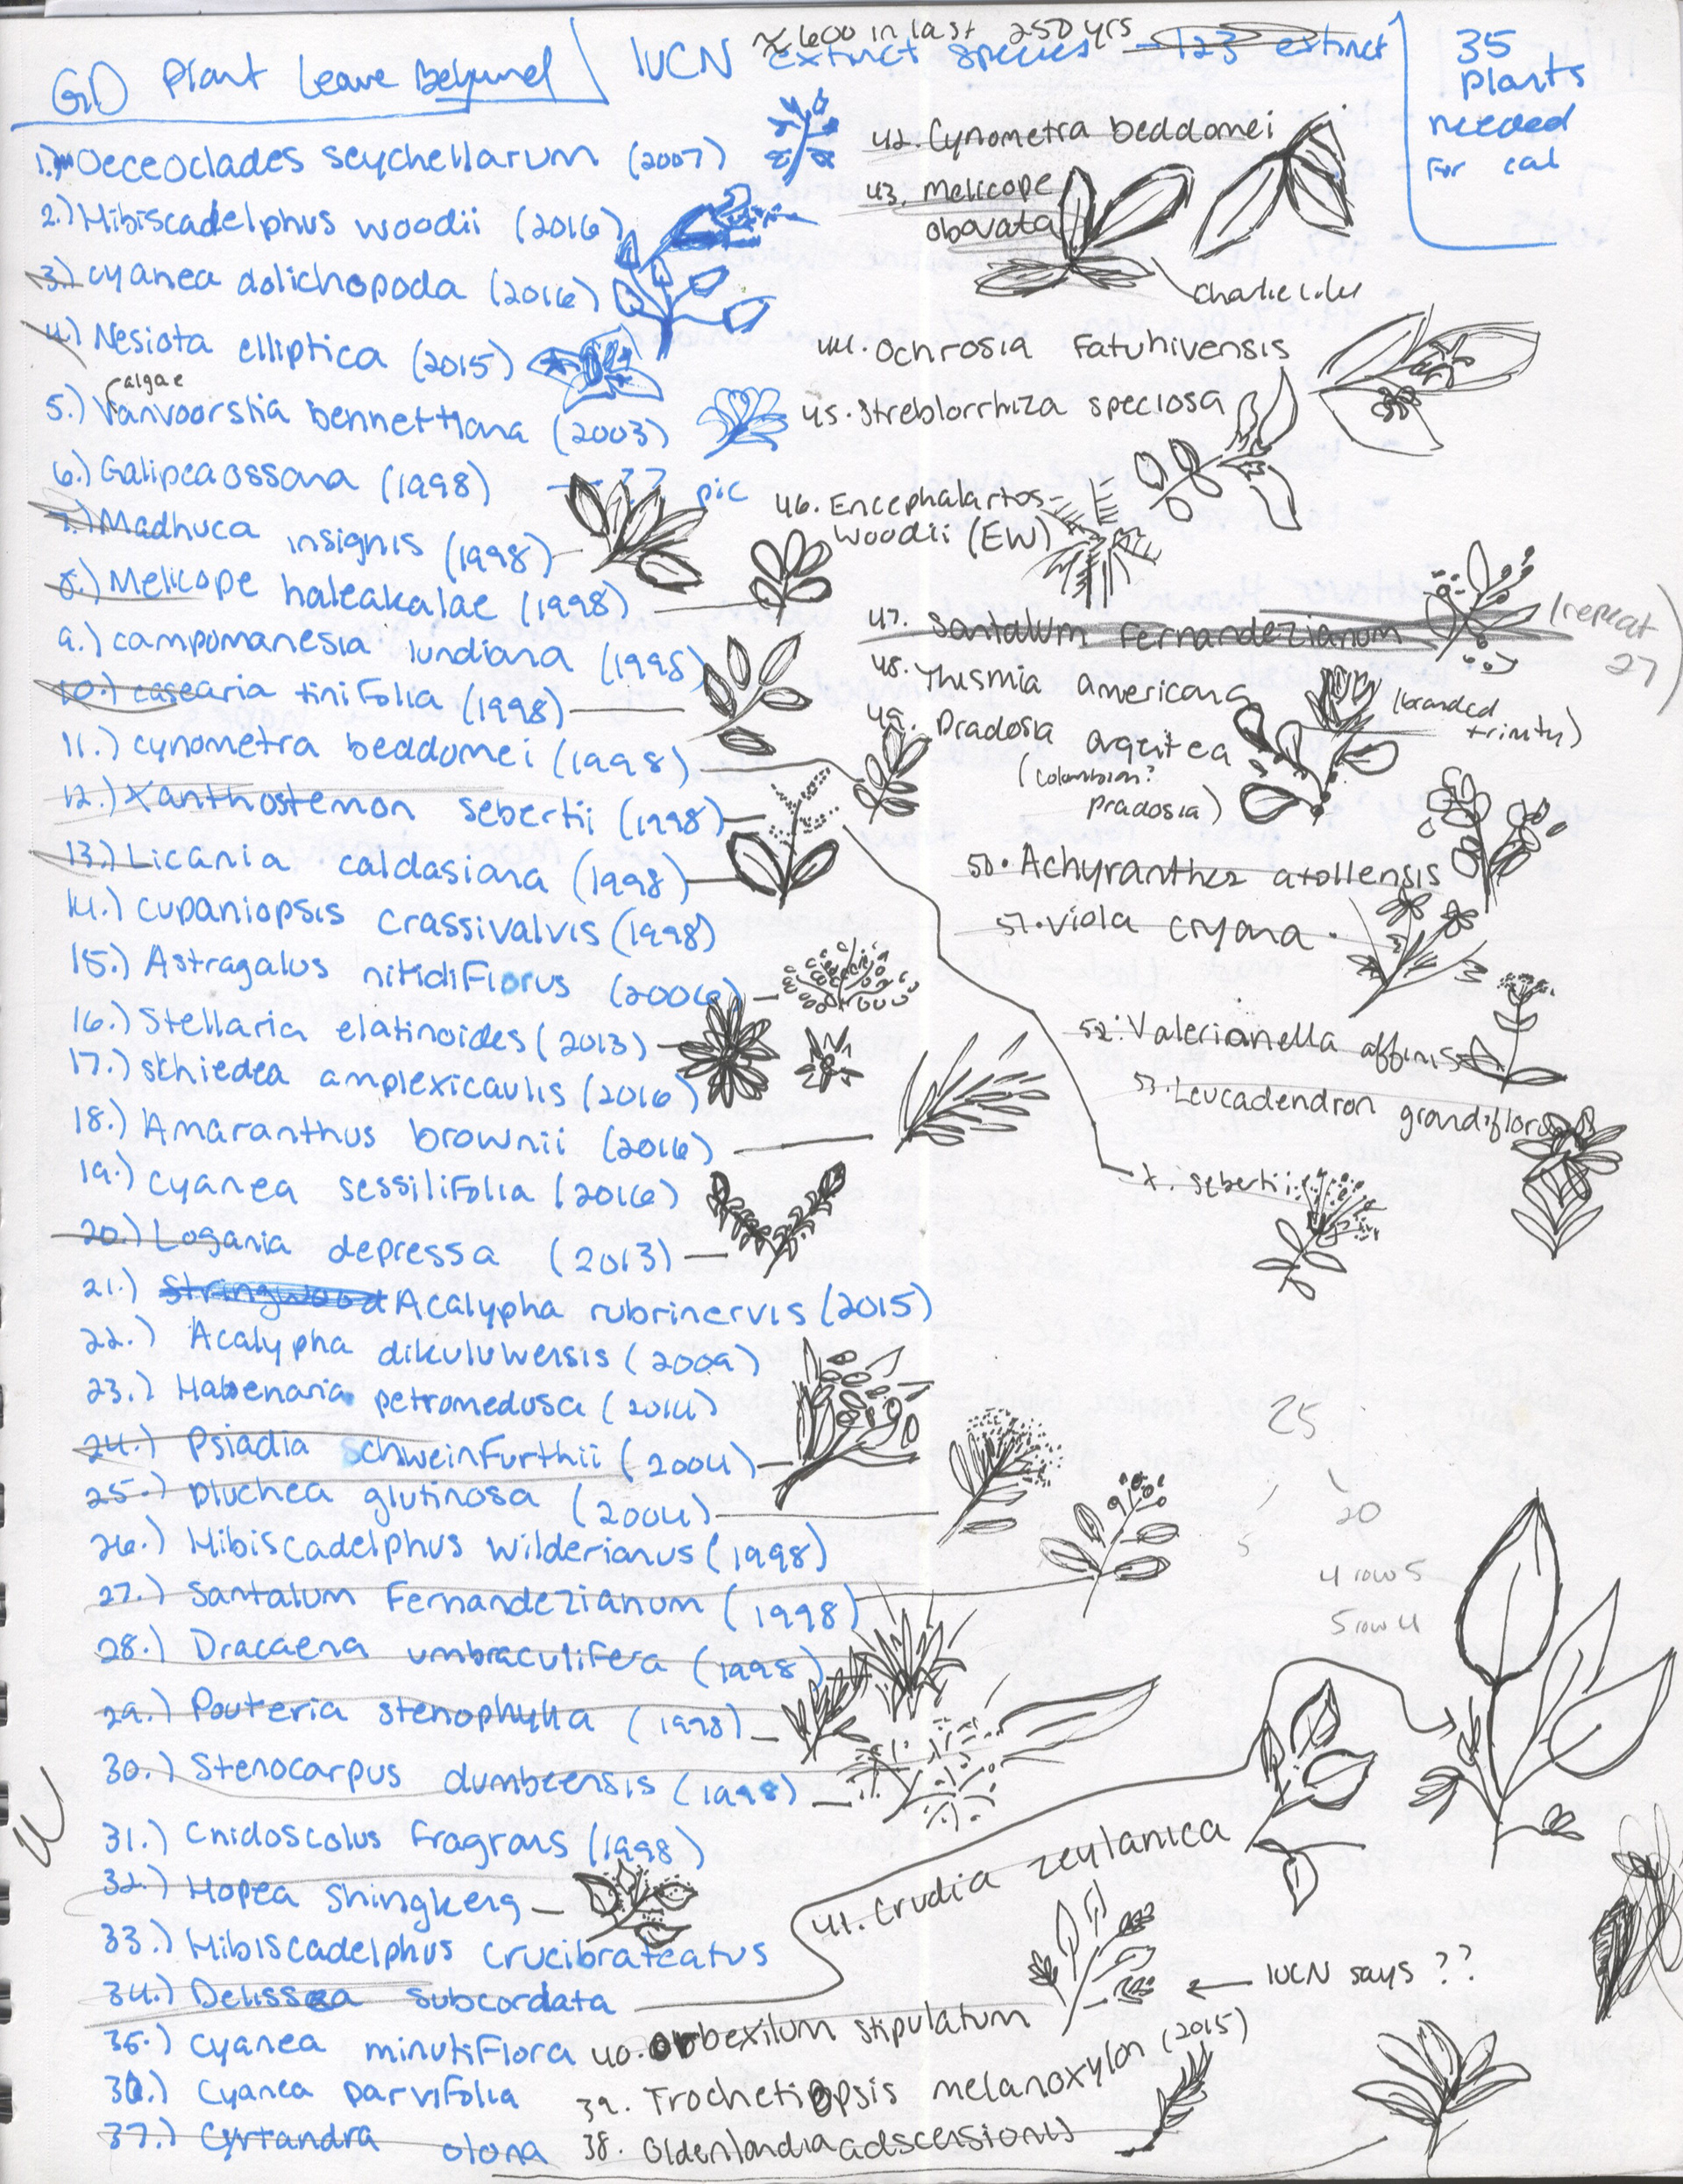 GD Plant Leave Behind
≈ 600 in last 250 yrs
IUCN extinct species - 123 extinct
35
plants
needed
for cal
1.) Oeceoclades seychellarum (2007)
2.) Hibiscadelphus woodii (2016)
3.) cyanea dolichopoda (2016)
4.) Nesiota elliptica (2015)
algae
5.) Vanvoorstia bennettiana (2003)
6.) Galipea ossana (1998) ?? pic
7.) Madhuca insignis (1998)
8.) Melicope haleakalae (1998)
9.) campomanesia lundiana (1998)
10.) casearia tinifolia (1998)
11.) cynometra beddomei (1998)
12.) Xanthostemon sebertii (1998)
13.) Licania caldasiana (1998)
14.) cupaniopsis crassivalvis (1998)
15.) Astragalus nitidiflorus (2006)
16.) Stellaria elatinoides (2013)
17.) schiedea amplexicaulis (2016)
18.) Amaranthus brownii (2016)
19.) cyanea sessilifolia (2016)
20.) Logania depressa (2013)
21.) Stringwood Acalypha rubrinervis (2015)
22.) Acalypha dikuluwensis (2009)
23.) Habenaria petromedusa (2014)
24.) Psiadia schweinfurthii (2004)
25.) pluchea glutinosa (2004)
26.) Hibiscadelphus wilderianus (1998)
27.) Santalum Fernandezianum (1998)
28.) Dracaena umbraculifera (1998)
29.) Pouteria stenophylla (1998)
30.) Stenocarpus dumbeensis (1998)
31.) Cnidoscolus fragrans (1998)
32.) Hopea shingkeng
33.) Hibiscadelphus crucibrateatus
34.) Delissea subcordata
35.) Cyanea minutiflora
36.) Cyanea parvifolia
37.) Cyrtandra olona
38. Oldenlandia adscensionis
39. Trochetiopsis melanoxylon (2015)
40. orbexilum stipulatum
IUCN says ??
41. Crudia zeylanica
42. Cynometra beddomei
43. Melicope
obovata
44. Ochrosia Fatuhivensis
45. Streblorrhiza speciosa
46. Encephalartos
woodii (EW)
47. Santalum Fernandezianum
(repeat
27)
48. Thismia americana
(branded
trinity)
49. Pradosia argutea
(colombian?
pradosia)
50. Achyranthes atollensis
51. Viola cryana
52. Valerianella affinis
53. Leucadendron grandiflorum
x. sebertii
25
5
20
4 row 5
5 row 4